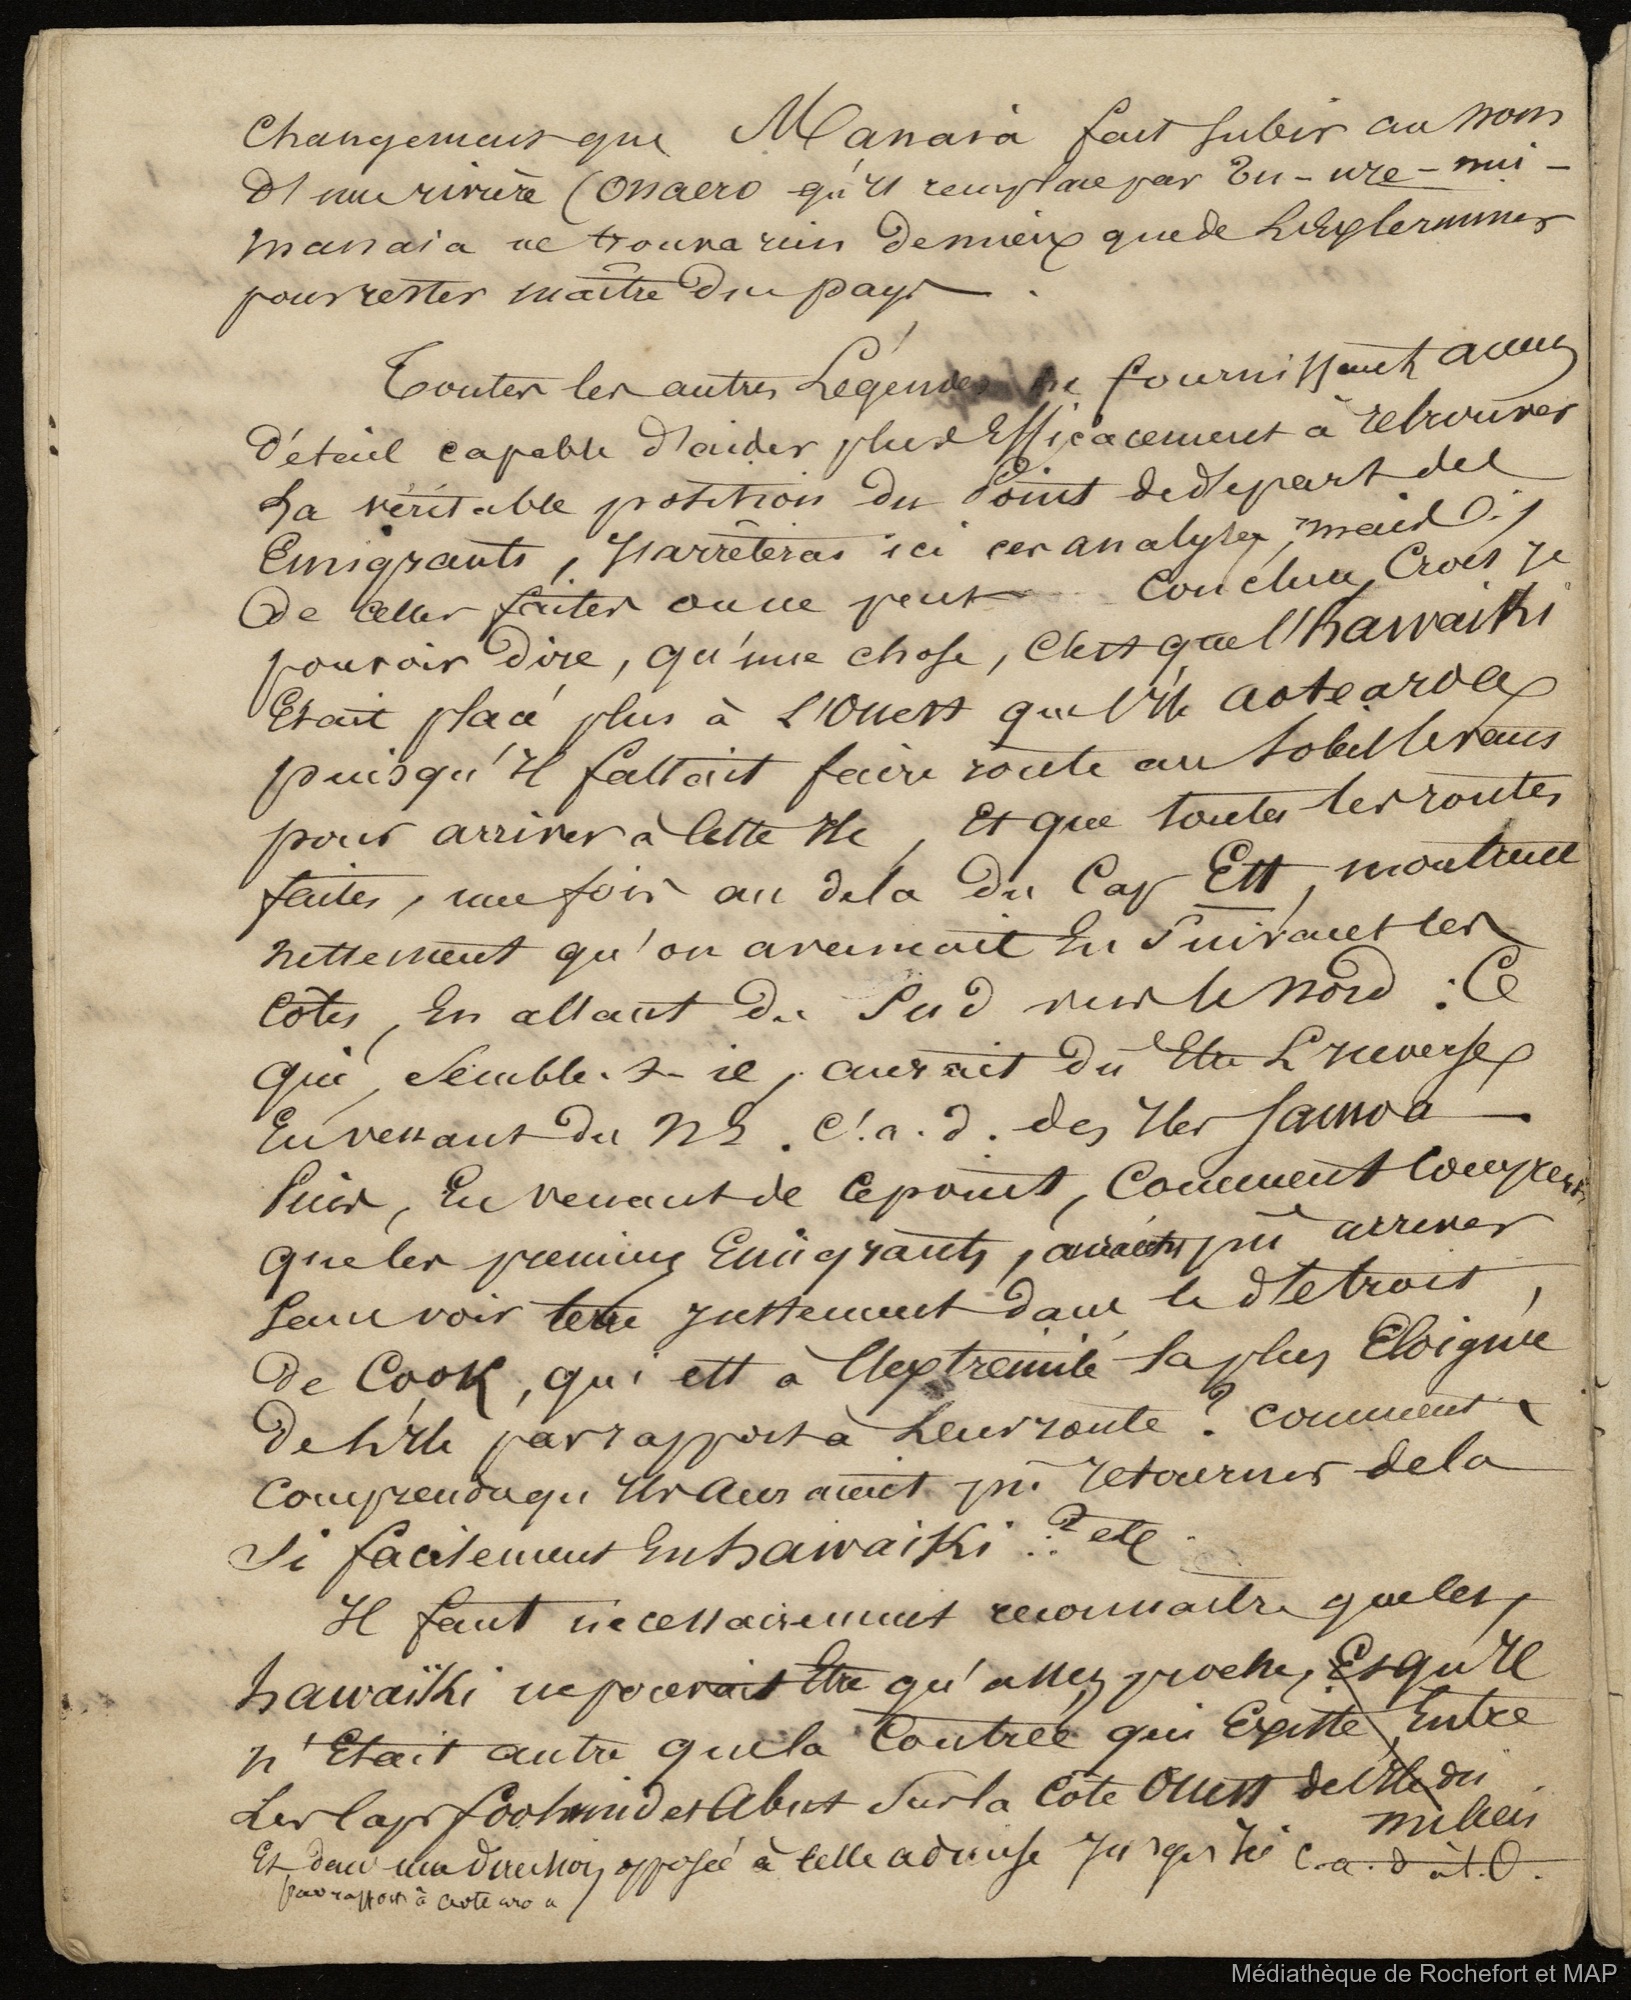 changement que Manaia fait subir au nom
d'une rivière (Onaero qu'il remplace par Tu-ure-nui-
manaia ne trouva rien de mieux que de l'exterminer
pour rester maître du pays.
Toutes les autres Légendes ne fournissant aucun
détail capable d'aider plus efficacement à retrouver
la véritable position du Point de départ des
Emigrants, j'arrêterai ici ces analyses, mais
De celles faites on ne peut conclure, crois je
pouvoir dire, qu'une chose, C'est que l'hawaiki
Etait placé plus à l'Ouest que l'Ile aotearoa
puisqu'il fallait faire route au soleil levant
pour arriver à cette Ile, Et que toutes les routes
faites, une fois au dela du Cap Est, montrent
nettement qu'on arrivait En Suivant les
côtes, En allant du Sud vers le Nord : Ce
qui, semble-t-il, aurait dû Etre l'inverse
En venant du N E. C'.a.d. des Iles Samoa
Puis, En venant de ce point, Comment
que les premiers Emigrants, auraient pu arriver
sans voir terre justement dans le détroit
de Cook, qui est à l'extrémité la plus Eloignée
De l'Ile par rapport à leur route ? comment
comprendre qu'Ils auraient pu retourner de la
si facilement En hawaiki ..? etc.
Il faut nécessairement reconnaître que les
hawaïki ne pouvait Etre qu'assez proche, Et qu'Il
n'Etait autre que la Contrée qui Existe, Entre
Les Caps foolwind et Abut Sur la Côte Ouest de l'Ile du
milieu
Et dans une direction opposée à celle admise jusqu'Ici c.a.d à l'O.
par rapport à aotearoa
Médiathèque de Rochefort et MAP